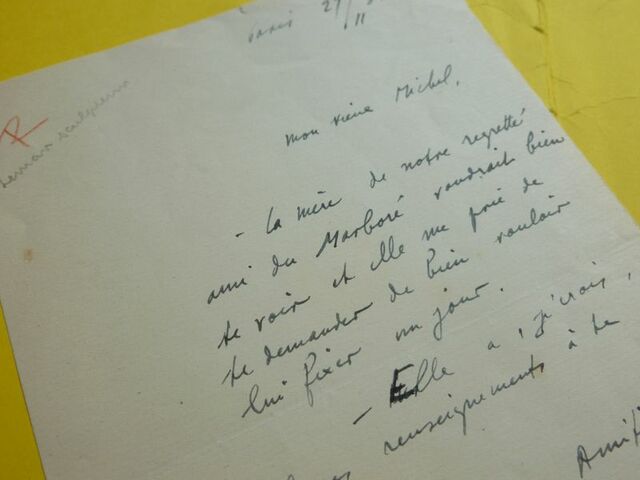 Paris 27/
11
R
mon vieux Michel,
- La mère de notre regretté
ami du Marboré voudrait bien
te voir et elle me prie de
te demander de bien vouloir
lui fixer un jour.
- Elle a, j'crois,
renseignements à te